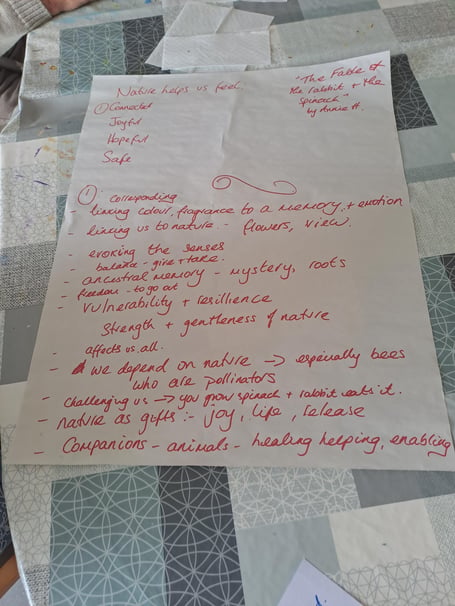 Nature helps us feel.
① Connected
Joyful
Hopeful
Safe
"The Fable of
the rabbit + the
spinach"
by Annie H.
① corresponding
- linking colour, fragrance to a memory + emotion
- linking us to nature - flowers, view.
- evoking the senses
- balance - give + take.
- ancestral memory - mystery, roots
- freedom - to go out
- vulnerability + resilience
Strength + gentleness of nature
- affects us all.
- we depend on nature → especially bees
who are pollinators
- challenging us → you grow spinach + rabbit eats it.
- nature as gifts :- joy, life, release
- Companions - animals - healing helping, enabling